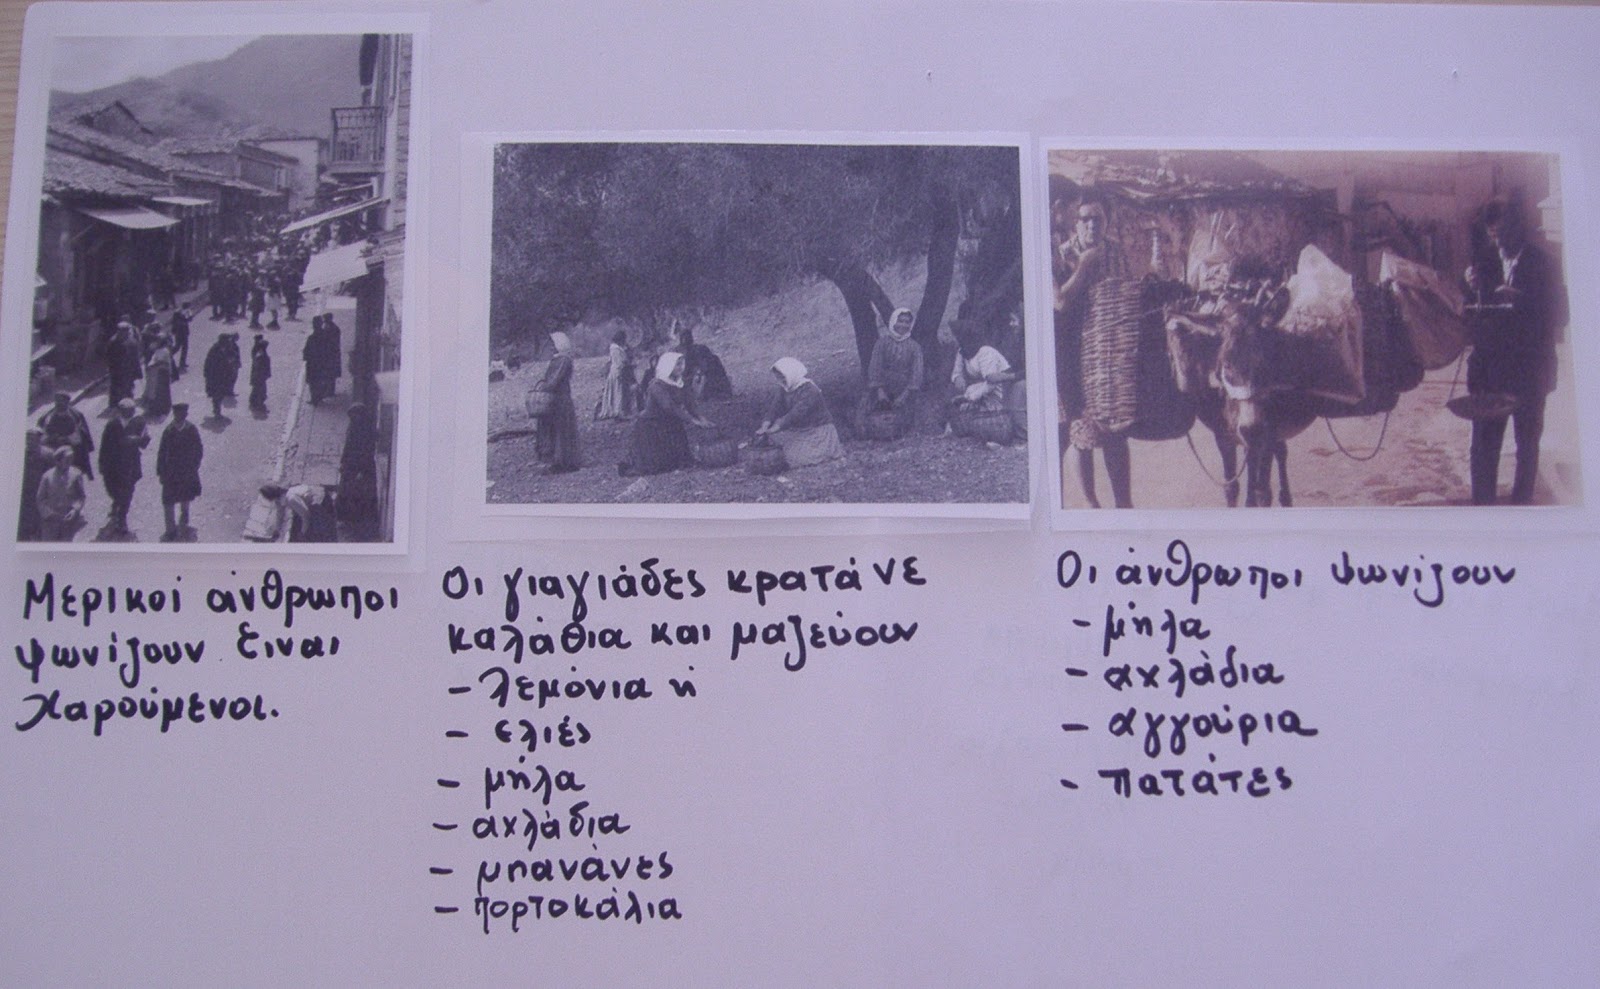 Μερικοί άνθρωποι
ψωνίζουν. Είναι
χαρούμενοι.
Οι γιαγιάδες κρατάνε
καλάθια και μαζεύουν
- λεμόνια ή
- ελιές
- μήλα
- αχλάδια
- μπανάνες
- πορτοκάλια
Οι άνθρωποι ψωνίζουν
- μήλα
- αχλάδια
- αγγούρια
- πατάτες